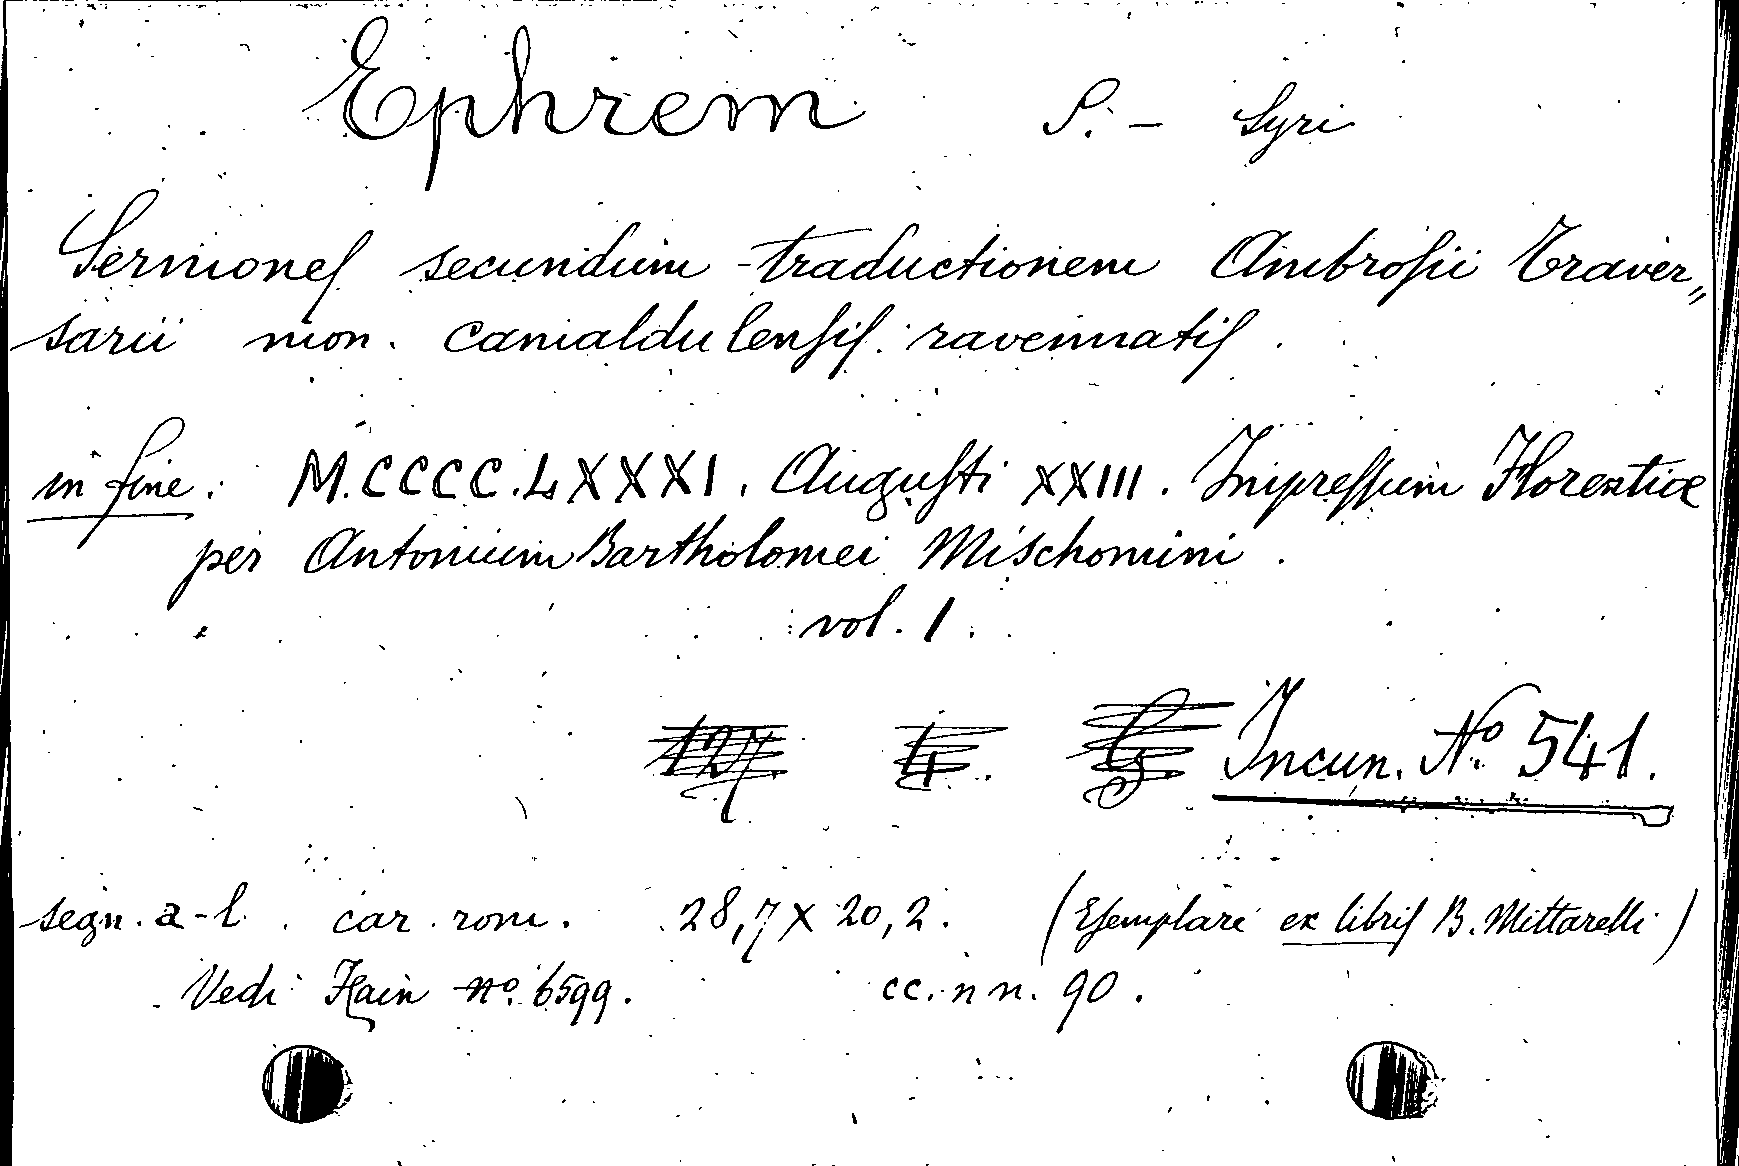 Ephrem S. - Syri
Sermones secundum traductionem Ambrosii Traver„
sarii mon. camaldulensis ravennatis.
in fine: M.CCCC.LXXXI. Augusti XXIII. Impressum Florentiae
per Antonium Bartholomei Mischomini.
vol. 1.
127. 4. Incun. No 541.
segn. a-l. car. rom. 28,7 X 20,2. (Esemplare ex libris B. Mittarelli)
Vedi Hain no. 6599. cc. nn. 90.